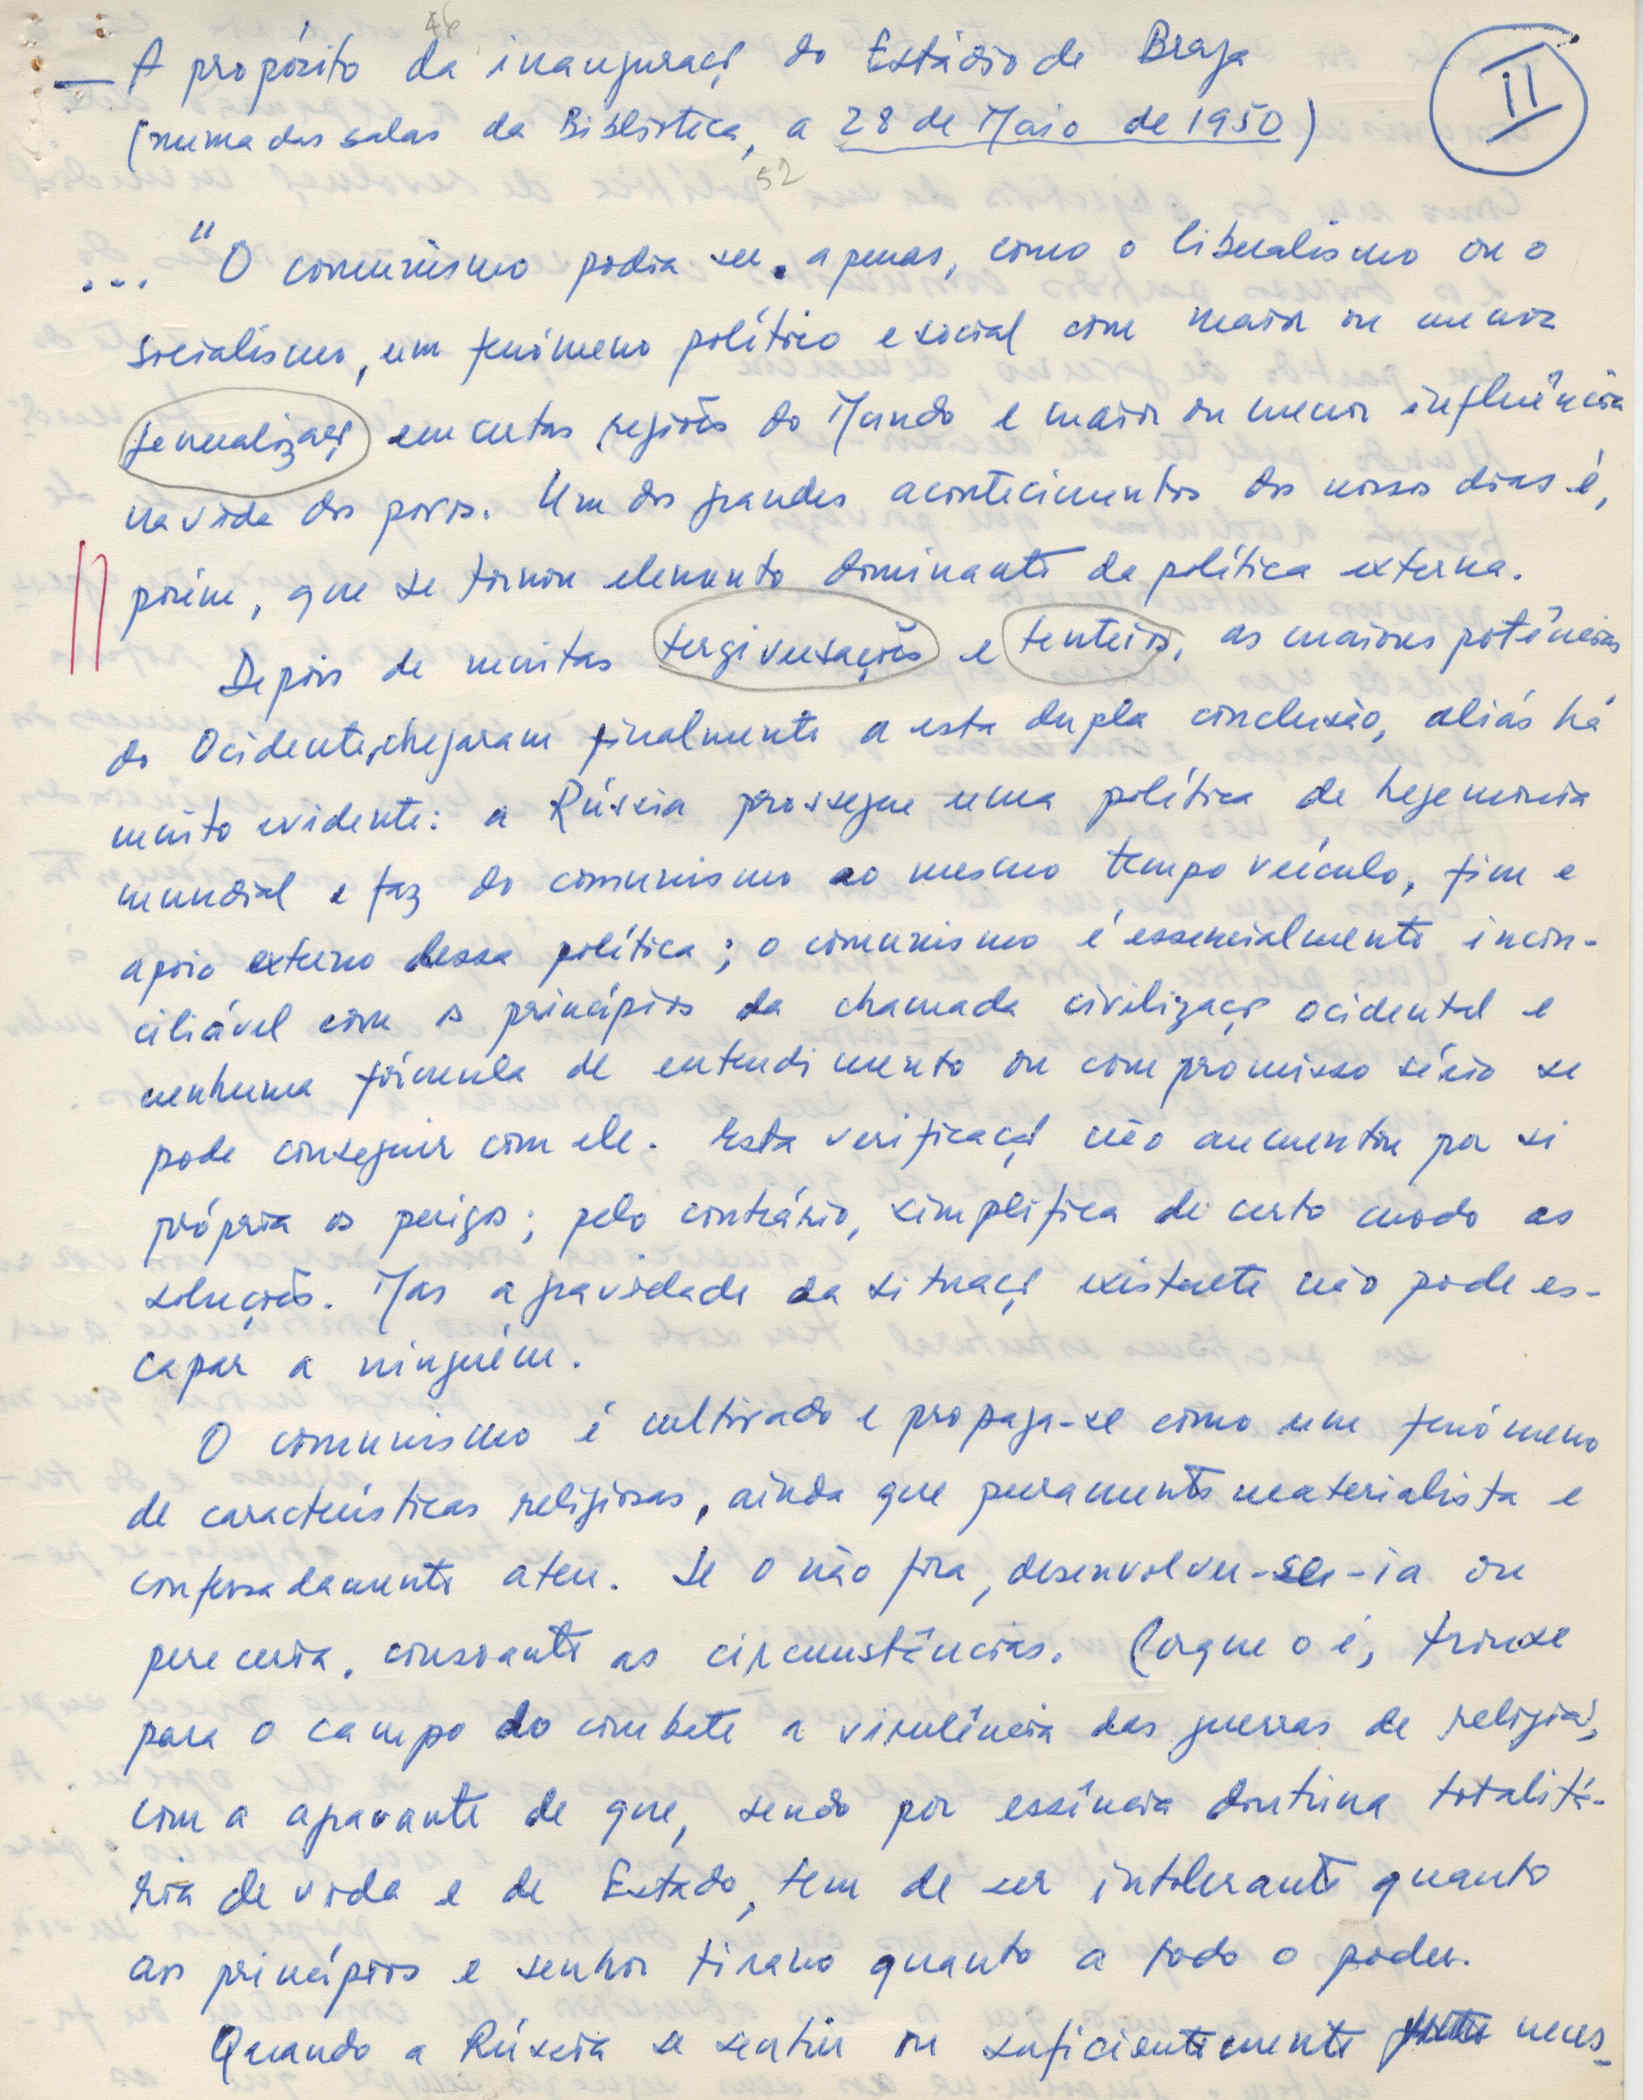 46
— A propósito da inauguraçº do Estádio de Braga
II
(numa das salas da Biblioteca, a 28 de Maio de 1950)
52
... "O comunismo podia ser apenas, como o liberalismo ou o
socialismo, um fenómeno político e social com maior ou menor
generalizaçº em certas regiões do Mundo e maior ou menor influência
na vida dos povos. Um dos grandes acontecimentos dos nossos dias é,
porém, que se tornou elemento dominante da política externa.
Depois de muitas tergiversações e tenteios, as maiores potências
do Ocidente, chegaram finalmente a esta dupla conclusão, aliás há
muito evidente: a Rússia prossegue uma política de hegemonia
mundial e faz do comunismo ao mesmo tempo veículo, fim e
apoio externo dessa política; o comunismo é essencialmente incon-
ciliável com os princípios da chamada civilizaçº ocidental e
nenhuma fórmula de entendimento ou compromisso sério se
pode conseguir com ele. Esta verificaçº não aumentou por si
própria os perigos; pelo contrário, simplifica de certo modo as
soluções. Mas a gravidade da situaçº existente não pode es-
capar a ninguém.
O comunismo é cultivado e propaga-se como um fenómeno
de características religiosas, ainda que puramente materialista e
confessadamente ateu. Se o não fora, desenvolver-se-ia ou
pereceria, consoante as circunstâncias. Porque o é, trouxe
para o campo do combate a virulência das guerras de religião,
com a agravante de que, sendo por essência doutrina totalitá-
ria de vida e de Estado, tem de ser intolerante quanto
aos princípios e senhor tirano quanto a todo o poder.
Quando a Rússia se sentir ou suficientemente neces-